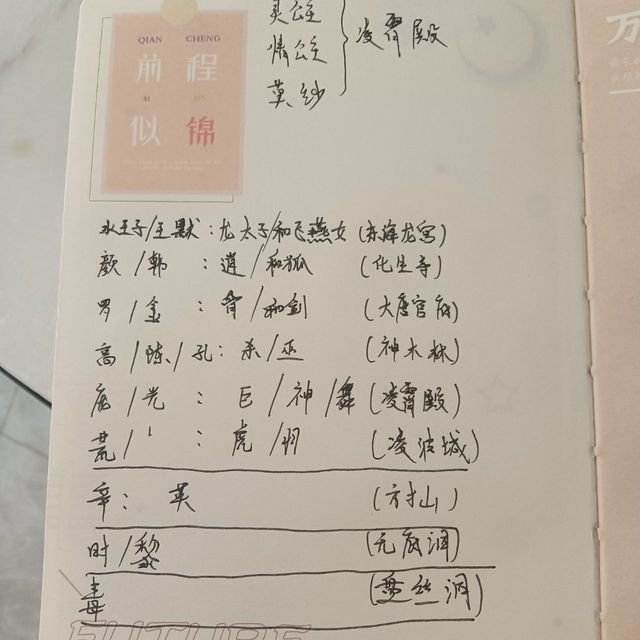 灵公主
情公主
莫纱
凌霄殿
QIAN CHENG
前程
SI JIN
似锦
万
水王子/王默:龙太子/和飞燕女(东海龙宫)
颜/韩:逍/和狐(化生寺)
罗/金:骨/和剑(大唐官府)
高/陈/孔:杀/巫(神木林)
庞/光:巨/神/舞(凌霄殿)
荒/:虎/羽(凌波城)
辛:英(方寸山)
时/黎(无底洞)
主母(盘丝洞)
FUTURE